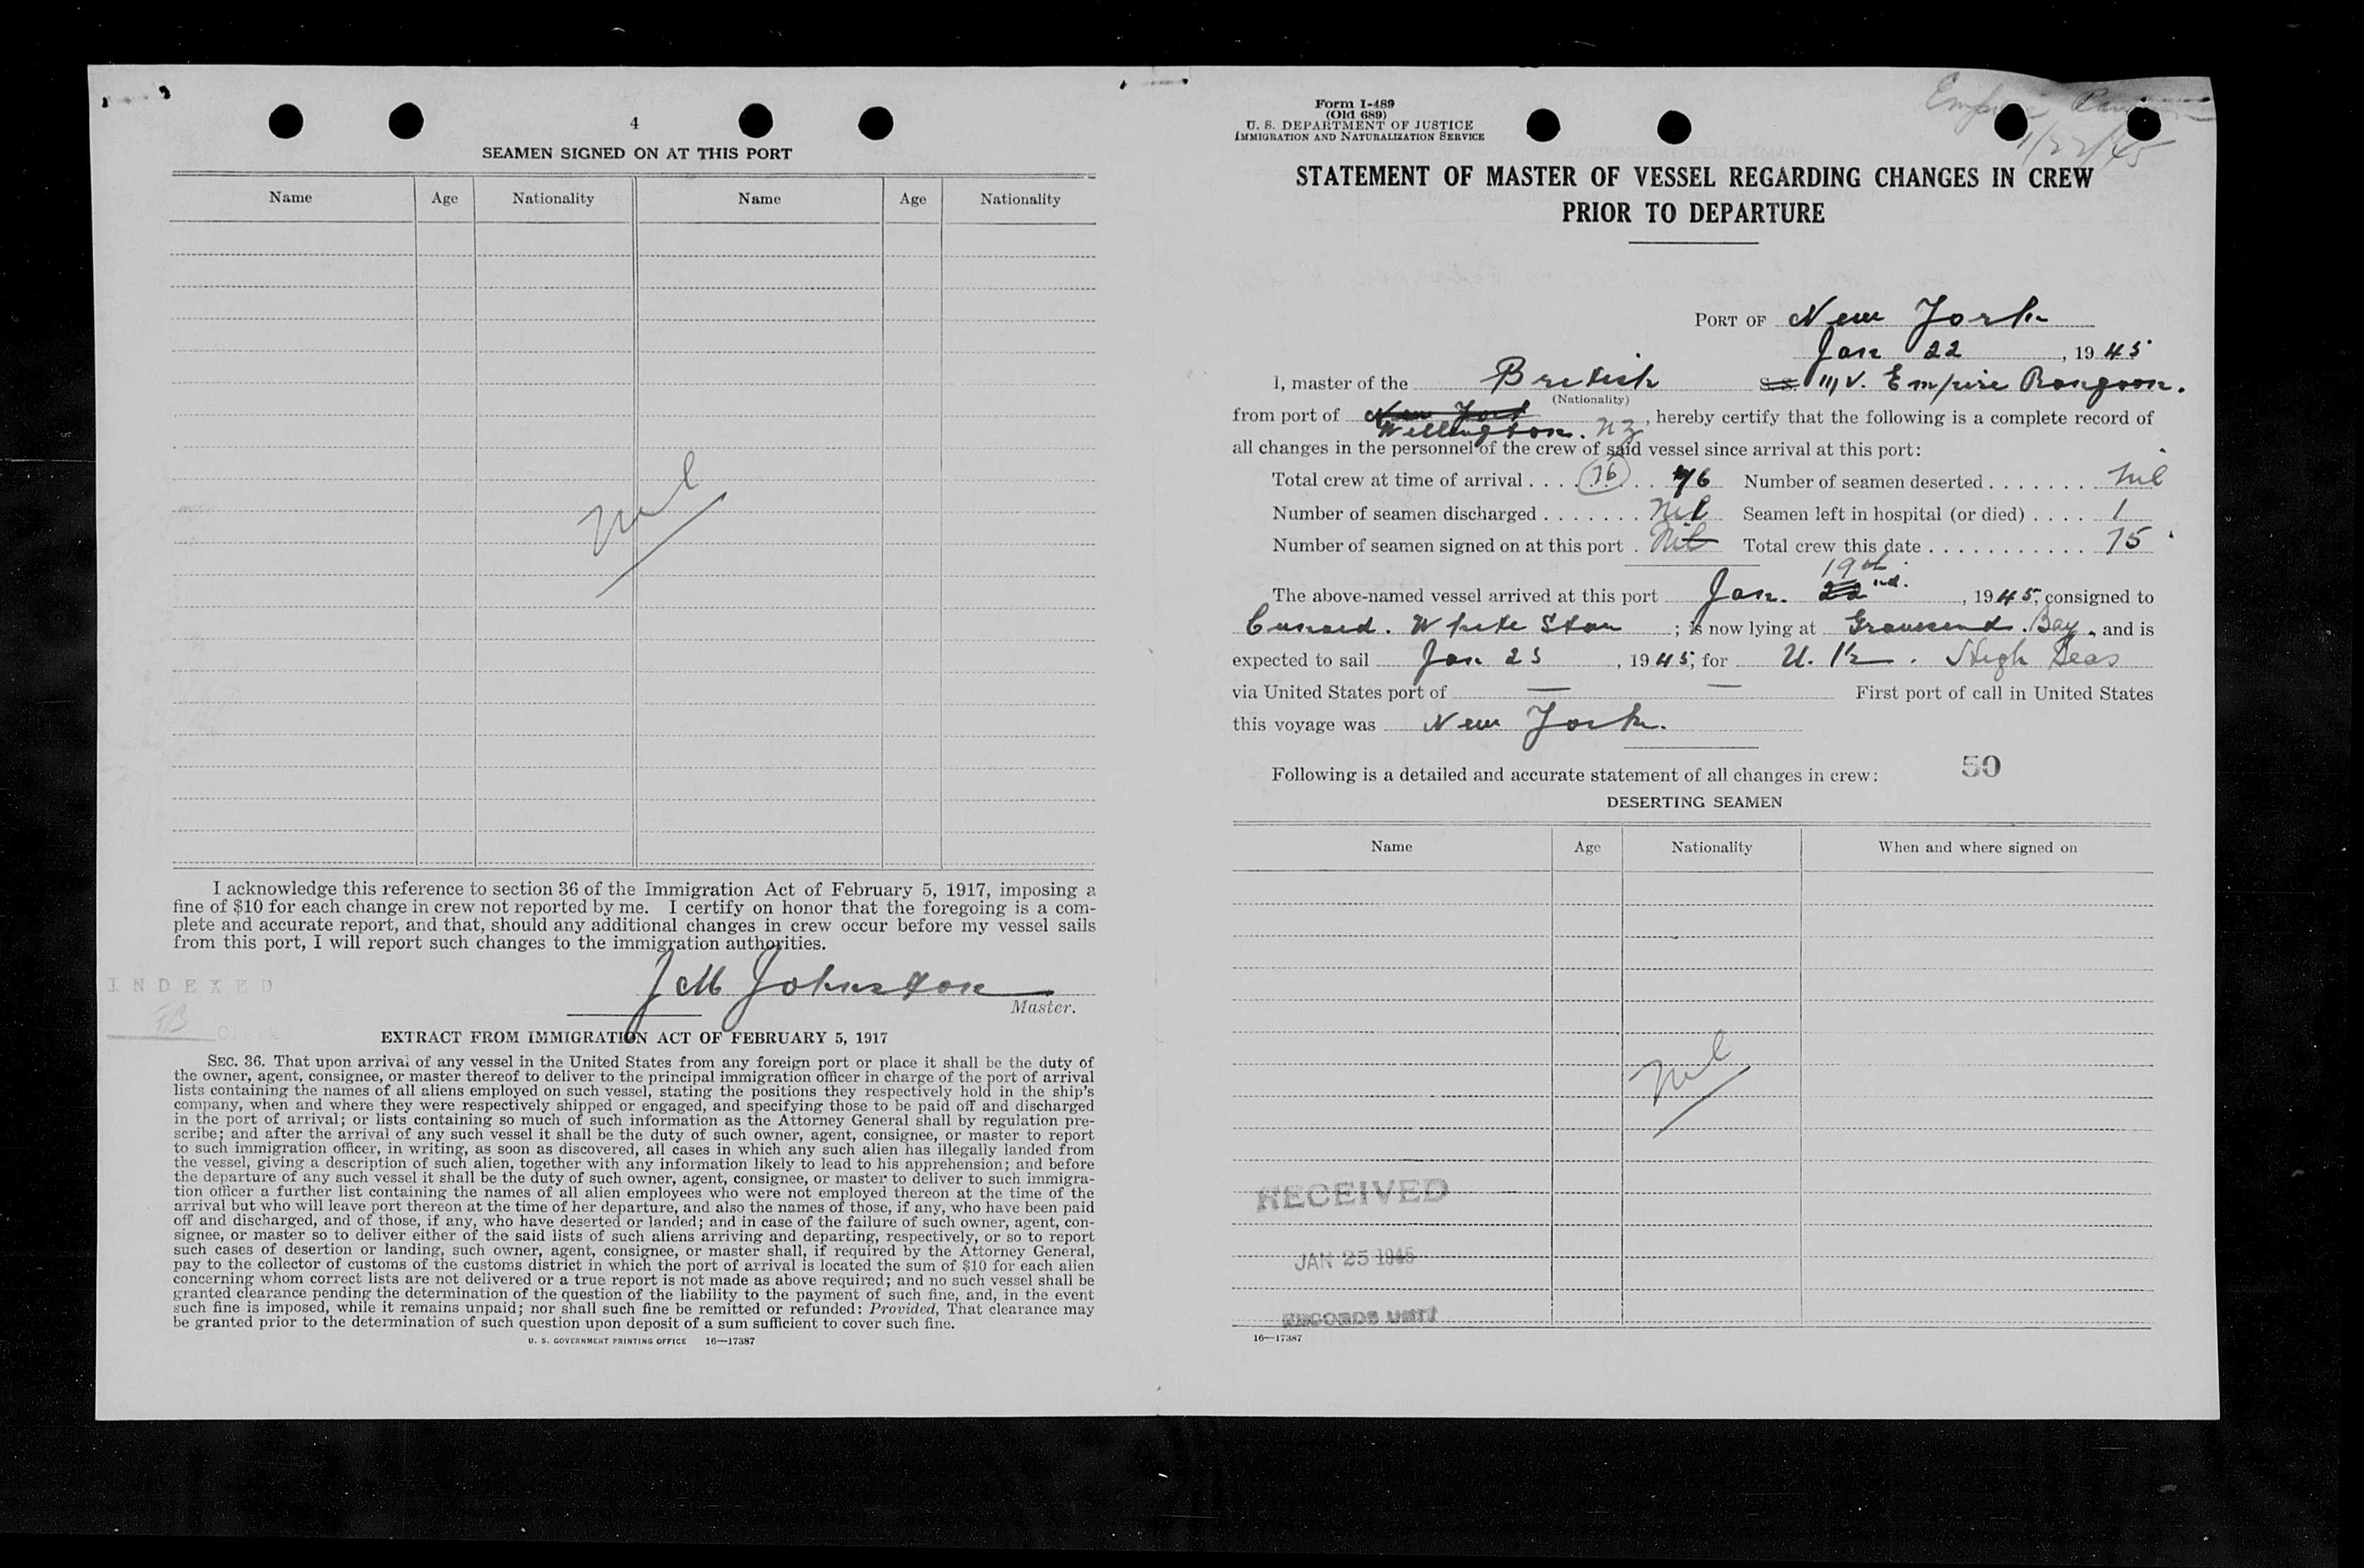 4
SEAMEN SIGNED ON AT THIS PORT
Name Age Nationality Name Age Nationality
Nil
I acknowledge this reference to section 36 of the Immigration Act of February 5, 1917, imposing a
fine of $10 for each change in crew not reported by me. I certify on honor that the foregoing is a com-
plete and accurate report, and that, should any additional changes in crew occur before my vessel sails
from this port, I will report such changes to the immigration authorities.
J M Johnston
Master.
INDEXED
Clerk
EXTRACT FROM IMMIGRATION ACT OF FEBRUARY 5, 1917
SEC. 36. That upon arrival of any vessel in the United States from any foreign port or place it shall be the duty of
the owner, agent, consignee, or master thereof to deliver to the principal immigration officer in charge of the port of arrival
lists containing the names of all aliens employed on such vessel, stating the positions they respectively hold in the ship's
company, when and where they were respectively shipped or engaged, and specifying those to be paid off and discharged
in the port of arrival; or lists containing so much of such information as the Attorney General shall by regulation pre-
scribe; and after the arrival of any such vessel it shall be the duty of such owner, agent, consignee, or master to report
to such immigration officer, in writing, as soon as discovered, all cases in which any such alien has illegally landed from
the vessel, giving a description of such alien, together with any information likely to lead to his apprehension; and before
the departure of any such vessel it shall be the duty of such owner, agent, consignee, or master to deliver to such immigra-
tion officer a further list containing the names of all alien employees who were not employed thereon at the time of the
arrival but who will leave port thereon at the time of her departure, and also the names of those, if any, who have been paid
off and discharged, and of those, if any, who have deserted or landed; and in case of the failure of such owner, agent, con-
signee, or master so to deliver either of the said lists of such aliens arriving and departing, respectively, or so to report
such cases of desertion or landing, such owner, agent, consignee, or master shall, if required by the Attorney General,
pay to the collector of customs of the customs district in which the port of arrival is located the sum of $10 for each alien
concerning whom correct lists are not delivered or a true report is not made as above required; and no such vessel shall be
granted clearance pending the determination of the question of the liability to the payment of such fine, and, in the event
such fine is imposed, while it remains unpaid; nor shall such fine be remitted or refunded: Provided, That clearance may
be granted prior to the determination of such question upon deposit of a sum sufficient to cover such fine.
U. S. GOVERNMENT PRINTING OFFICE 16—17387
Form I-489
(Old 689)
U. S. DEPARTMENT OF JUSTICE
IMMIGRATION AND NATURALIZATION SERVICE
Empire
1/22/45
STATEMENT OF MASTER OF VESSEL REGARDING CHANGES IN CREW
PRIOR TO DEPARTURE
PORT OF New York
Jan 22, 1945
I, master of the British S.S. M.V. Empire Rangoon.
(Nationality)
from port of New York Wellington. NZ, hereby certify that the following is a complete record of
all changes in the personnel of the crew of said vessel since arrival at this port:
Total crew at time of arrival . . . . 76 . . 76 Number of seamen deserted . . . . . . . Nil
Number of seamen discharged . . . . . . . Nil Seamen left in hospital (or died) . . . . 1
Number of seamen signed on at this port . Nil Total crew this date . . . . . . . . . . . 75
19th
The above-named vessel arrived at this port Jan. 22nd., 1945, consigned to
Cunard. White Star ; is now lying at Gravesend. Bay, and is
expected to sail Jan 25, 1945, for U. K. High Seas
via United States port of — — First port of call in United States
this voyage was New York.
Following is a detailed and accurate statement of all changes in crew: 50
DESERTING SEAMEN
Name Age Nationality When and where signed on
Nil
RECEIVED
JAN 25 1945
RECORDS UNIT
16—17387